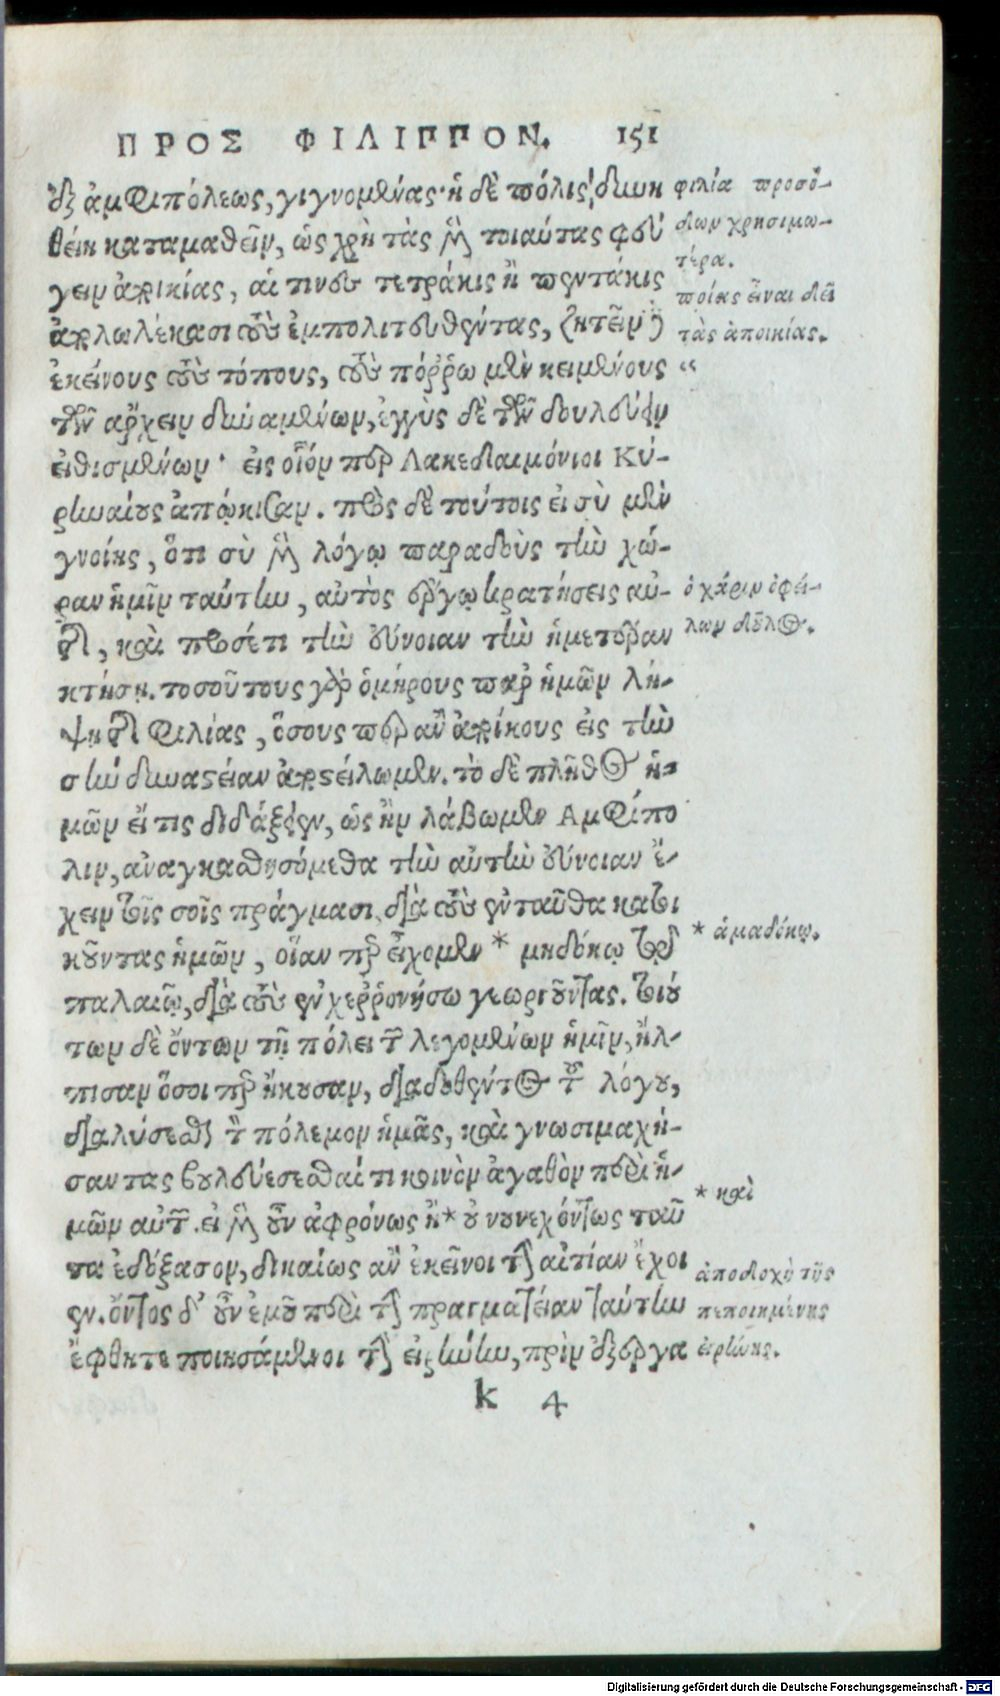 ΠΡΟΣ ΦΙΛΙΠΠΟΝ. 151
ἐξ ἀμφιπόλεως, γιγνομένας· ἡ δὲ πόλις, δυνη
θείη καταμαθεῖν, ὡς χρὴ τὰς μὲν τοιαύτας φεύ
γειν ἀποικίας, αἵ τινες τετράκις ἢ πεντάκις
ἀπολωλέκασι τοὺς ἐμπολιτευθέντας, ζητεῖν δ'
ἐκείνους τοὺς τόπους, τοὺς πόῤῥω μὲν κειμένους
τῶν ἄρχειν δυναμένων, ἐγγὺς δὲ τῶν δουλεύειν
εἰθισμένων· εἰς οἷόν περ Λακεδαιμόνιοι Κυ-
ρηναίους ἀπῴκισαν. πρὸς δὲ τούτοις εἰ σὺ μὲν
γνοίης, ὅτι σὺ μὲν λόγῳ παραδοὺς τὴν χώ-
ραν ἡμῖν ταύτην, αὐτὸς ἔργῳ κρατήσεις αὐ-
τῆς, καὶ προσέτι τὴν εὔνοιαν τὴν ἡμετέραν
κτήσῃ. τοσούτους γὰρ ὁμήρους παρ' ἡμῶν λή-
ψῃ τῆς φιλίας, ὅσους περ ἂν ἀποίκους εἰς τὴν
σὴν δυναστείαν ἀποστείλωμεν. τὸ δὲ πλῆθος ἡ-
μῶν εἴ τις διδάξειεν, ὡς ἢν λάβωμεν Ἀμφίπο
λιν, ἀναγκασθησόμεθα τὴν αὐτὴν εὔνοιαν ἔ-
χειν τοῖς σοῖς πράγμασι, διὰ τοὺς ἐνταῦθα κατοι
κοῦντας ἡμῶν, οἵαν περ εἴχομεν * μηδόκῳ τῷ
παλαιῷ, διὰ τοὺς ἐν χεῤῥονήσῳ γεωργοῦντας. τοιού
των δὲ ὄντων τῇ πόλει τῶν λεγομένων ἡμῖν, ἤλ-
πισαν ὅσοι περ ἤκουσαν, διαδοθέντος τοῦ λόγου,
διαλύσεσθαι τὸν πόλεμον ἡμᾶς, καὶ γνωσιμαχή-
σαντας βουλεύσεσθαί τι κοινὸν ἀγαθὸν περὶ ἡ-
μῶν αὐτῶν. εἰ μὲν οὖν ἀφρόνως ἢ * οὐ νουνεχόντως ταῦ
τα ἐδόξασον, δικαίως ἂν ἐκεῖνοι τὴν αἰτίαν ἔχοι
εν. ὄντος δ' οὖν ἐμοῦ περὶ τὴν πραγματείαν ταύτην
ἔφθητε ποιησάμενοι τὴν εἰρήνην, πρὶν ἐξεργα
k 4
φιλία προσό-
δων χρησιμω-
τέρα.
ποίας εἶναι δεῖ
τὰς ἀποικίας.
“
ὁ χάριν ὀφεί-
λων δοῦλος.
* ἀμαδόκῳ.
* καὶ
ἀποδοχὴ τῆς
πεποιημένης
εἰρήνης.
Digitalisierung gefördert durch die Deutsche Forschungsgemeinschaft - DFG